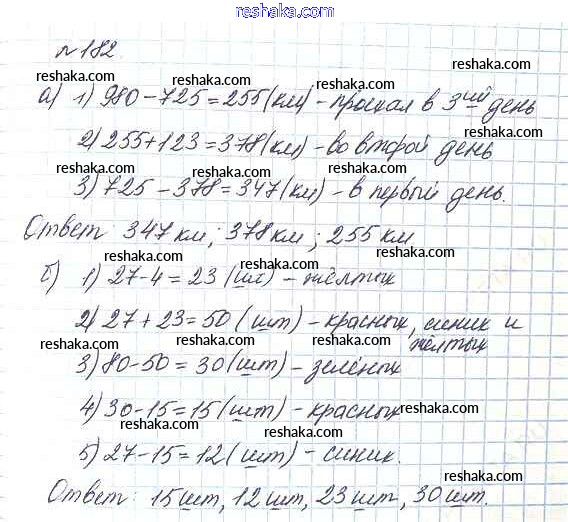 reshaka.com
№182
reshaka.com reshaka.com reshaka.com
а) 1) 980-725=255(км) - проехал в 3ий день
reshaka.com reshaka.com
2) 255+123=378(км) - во второй день
reshaka.com reshaka.com reshaka.com
3) 725-378=347(км) - в первый день.
Ответ: 347 км; 378 км; 255 км
reshaka.com reshaka.com
б) 1) 27-4=23 (шт) - жёлтых
reshaka.com reshaka.com
2) 27+23=50 (шт) - красных, синих и
жёлтых
reshaka.com reshaka.com reshaka.com
3) 80-50=30 (шт) - зелёных
4) 30-15=15 (шт) - красных
reshaka.com reshaka.com reshaka.com
reshaka.com
5) 27-15=12 (шт) - синих.
reshaka.com
Ответ: 15шт, 12шт, 23шт, 30шт.
reshaka.com reshaka.com